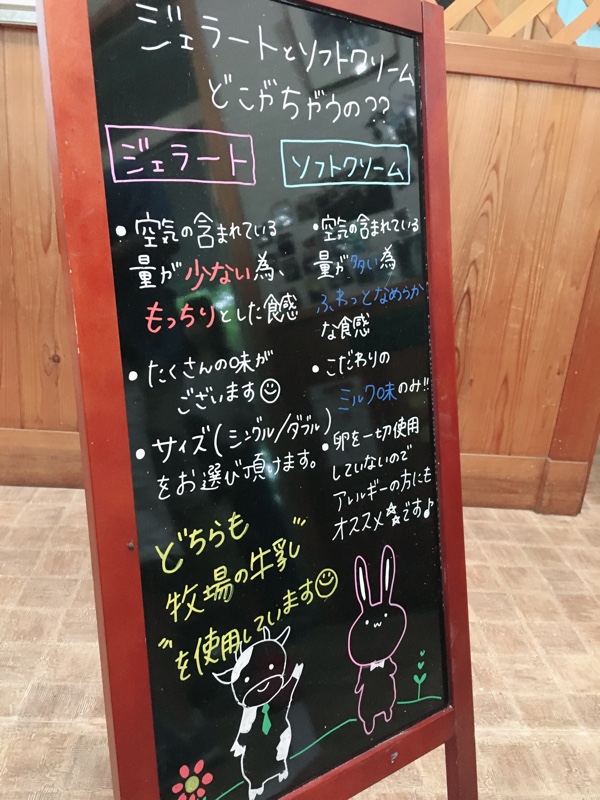 ジェラートとソフトクリーム
どこがちがうの??
ジェラート
・空気の含まれている
量が少ない為、
もっちりとした食感
・たくさんの味が
ございます☺
・サイズ(シングル/ダブル)
をお選び頂けます。
ソフトクリーム
・空気の含まれている
量が多い為
ふわっとなめらか
な食感
・こだわりの
ミルク味のみ!!
・卵を一切使用
していないので
アレルギーの方にも
オススメ☆です♪
どちらも
牧場の牛乳
を使用しています☺